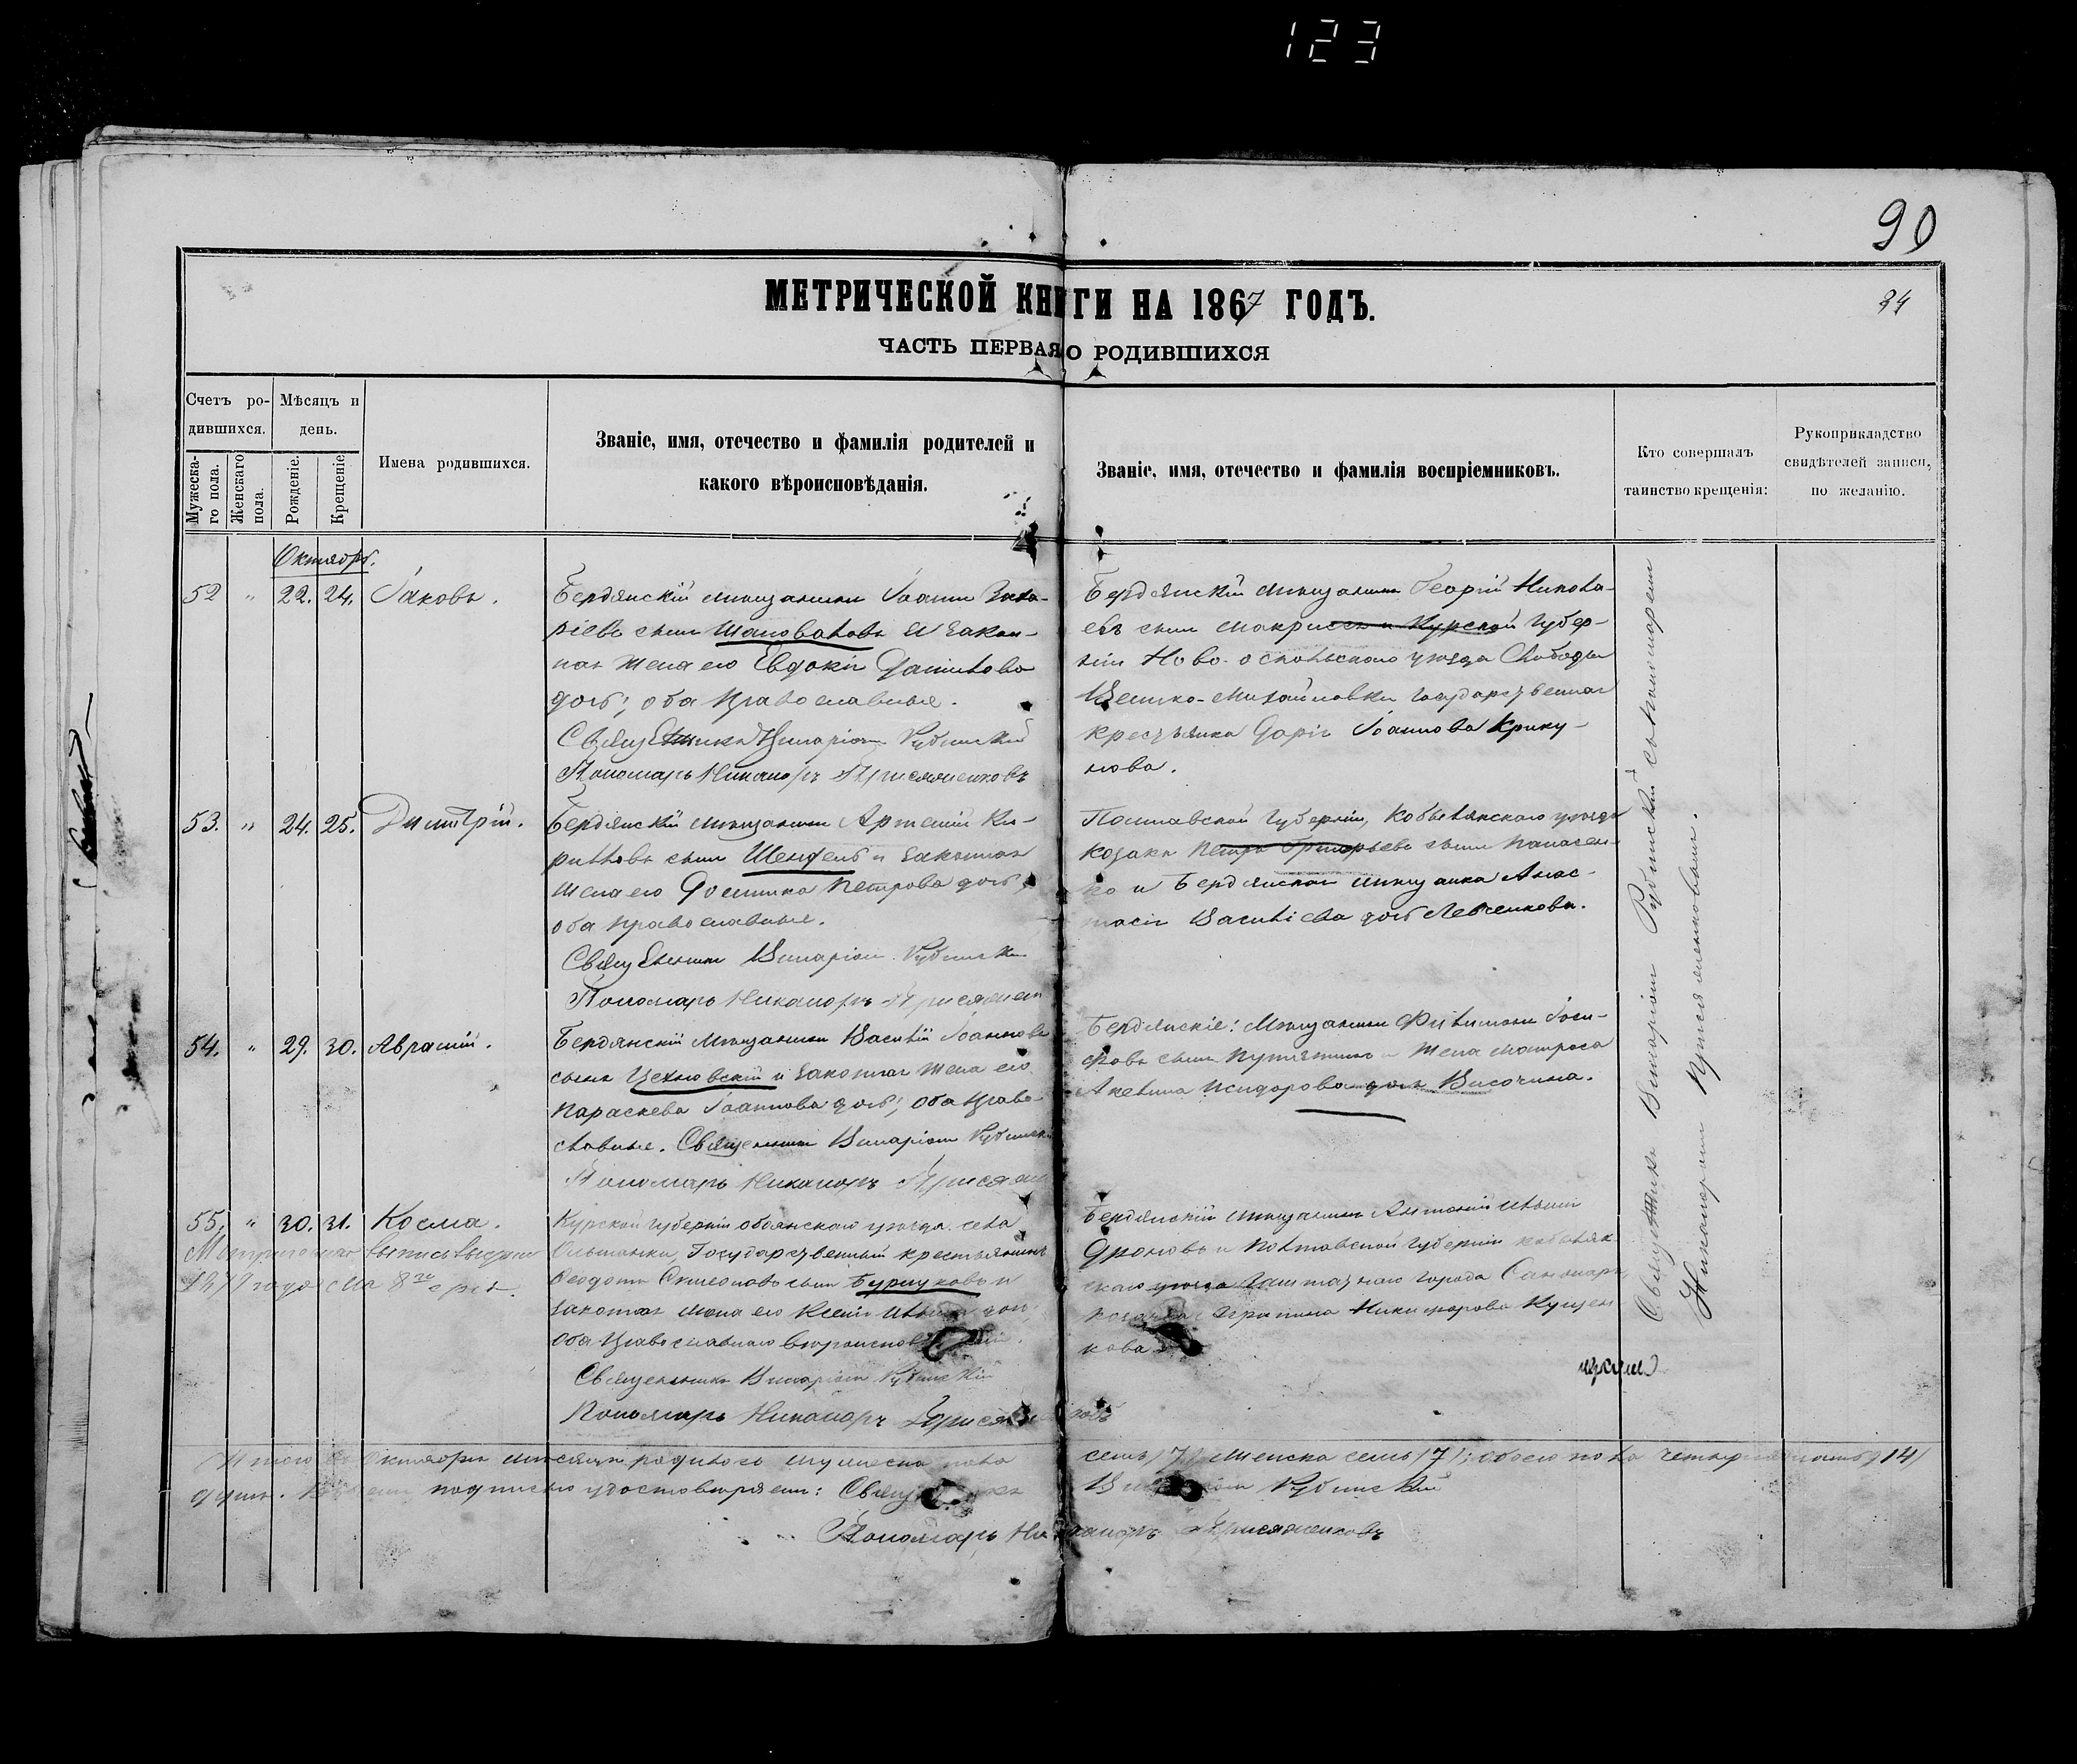 123
90
МЕТРИЧЕСКОЙ КНИГИ НА 1867 ГОДЪ.
34
ЧАСТЬ ПЕРВАЯ О РОДИВШИХСЯ
Счетъ ро-
дившихся.
Мѣсяцъ и
день.
Мужеска-
го пола.
Женскаго
пола.
Рожденіе.
Крещеніе
Имена родившихся.
Званіе, имя, отечество и фамилія родителей и
какого вѣроисповѣданія.
Званіе, имя, отечество и фамилія воспріемниковъ.
Кто совершалъ
таинство крещенія:
Рукоприкладство
свидѣтелей записи,
по желанію.
Октябрь.
52 " 22. 24. Іаковъ.
Бердянскій мѣщанинъ Іоаннъ Заха-
ріевъ сынъ Шаповаловъ и закон-
ная жена его Евдокія Данилова
дочь; оба православные.
Священникъ Виссаріонъ Рубинскій
Пономарь Никаноръ Присяжненковъ
Бердянскій мѣщанинъ Георгій Никола-
евъ сынъ и Курской Губер-
ніи Ново-оскольскаго уѣзда Слободы
Велико-Михайловки Государственная
крестьянка Дарія Іоаннова Крику-
нова.
53. " 24. 25. Димитрій.
Бердянскій мѣщанинъ Артемій Ки-
рилловъ сынъ и законная
жена его Домника Петрова дочь,
оба православные.
Священникъ Виссаріонъ Рубинскій
Пономарь Никаноръ
Полтавской Губерніи, Кобелякскаго уѣзда
козакъ Петръ Григорьевъ сынъ Панасен-
ко и Бердянская мѣщанка Анас-
тасія Василіева дочь Левченкова.
54. " 29. 30. Аврамій.
Бердянскій Мѣщанинъ Василій Іоанновъ
сынъ Цехновскій и законная жена его
Параскева Іоаннова дочь; оба право-
славные. Священникъ Виссаріонъ Рубинскій
Пономарь Никаноръ
Бердянскіе: Мѣщанинъ Филимонъ Іоси-
фовъ сынъ и жена матроса
Акелина Исидорова дочь Височина.
55. " 30. 31. Косма.
Метрическая выпись выдана
1879 года
Курской губерніи обоянскаго уѣзда села
Ольшанки, Государственный крестьянинъ
Ѳеодотъ Симеоновъ сынъ и
законная жена его Ксенія
оба православнаго вѣроисповѣданія.
Священникъ Виссаріонъ Рубинскій
Пономарь Никаноръ Присяжненковъ
Бердянскій мѣщанинъ Антоній
Дроновъ и Полтавской Губерніи кобеляк-
скаго уѣзда Заштатнаго города
козачка Агрипина Никифорова Куцен
кова
Священникъ Виссаріонъ Рубинскій съ пономаремъ
Никаноромъ Присяжненковымъ.
Итого въ Октябрѣ мѣсяцѣ родилось мужеска пола семь /7/ женска семь /7/; обоего пола четырнадцать /14/
душъ. подписью удостовѣряемъ: Священникъ Виссаріонъ Рубинскій
Пономарь Никаноръ Присяжненковъ